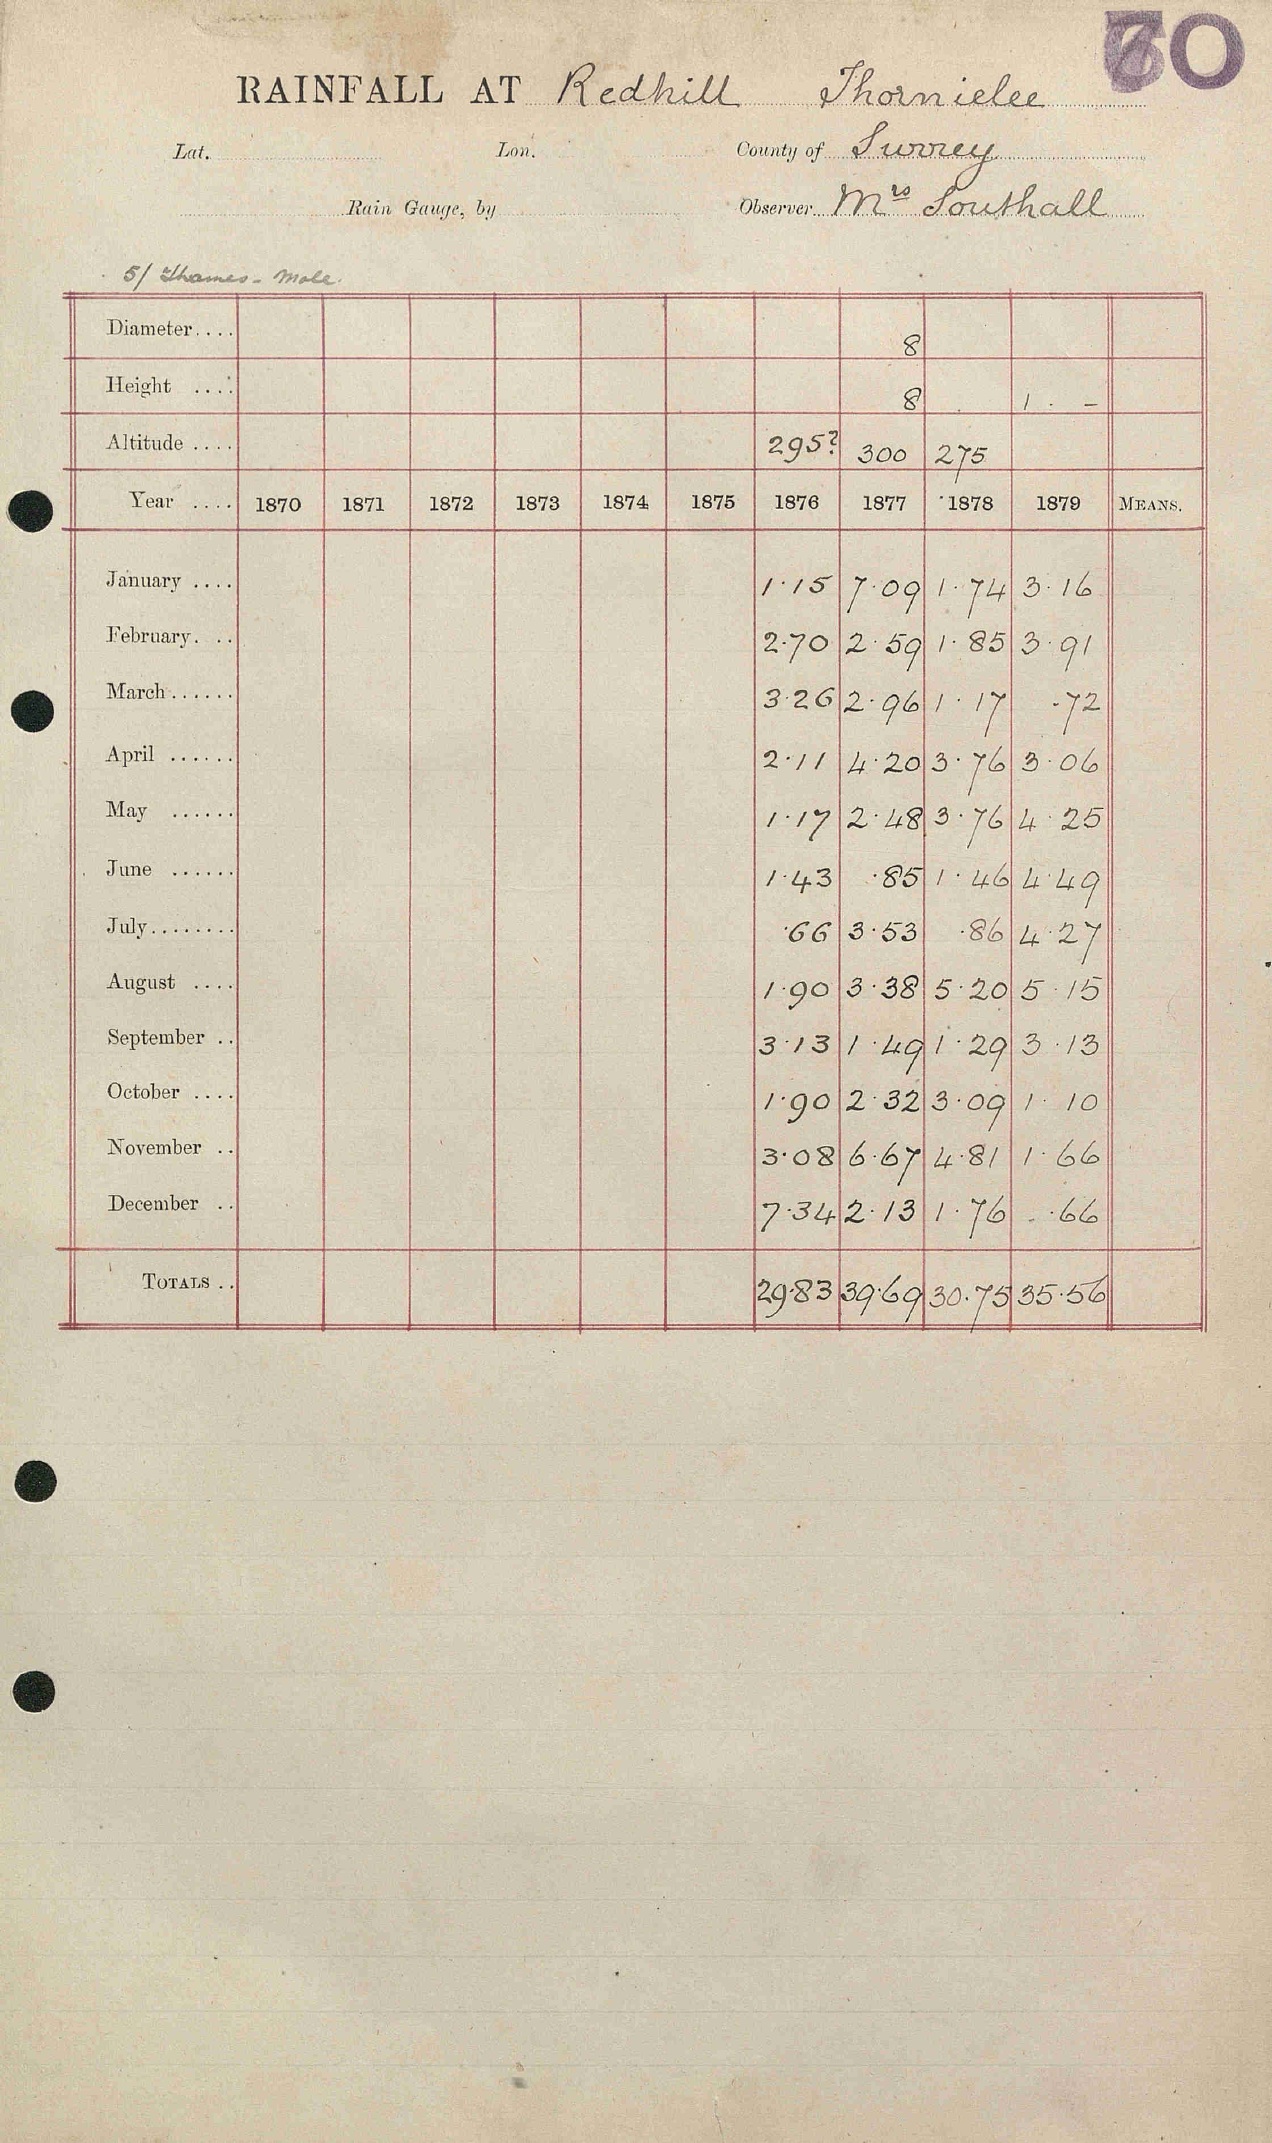 70
RAINFALL AT Redhill Thornielee
Lat. Lon. County of Surrey
Rain Gauge, by Observer Mrs Southall
5/ Thames - Mole.
Diameter.... 8
Height .... 8 1 . -
Altitude .... 295? 300 275
Year .... 1870 1871 1872 1873 1874 1875 1876 1877 1878 1879 MEANS.
January .... 1.15 7.09 1.74 3.16
February. .. 2.70 2.59 1.85 3.91
March ...... 3.26 2.96 1.17 .72
April ...... 2.11 4.20 3.76 3.06
May ...... 1.17 2.48 3.76 4.25
June ...... 1.43 .85 1.46 4.49
July........ .66 3.53 .86 4.27
August .... 1.90 3.38 5.20 5.15
September .. 3.13 1.49 1.29 3.13
October .... 1.90 2.32 3.09 1.10
November .. 3.08 6.67 4.81 1.66
December .. 7.34 2.13 1.76 .66
TOTALS .. 29.83 39.69 30.75 35.56